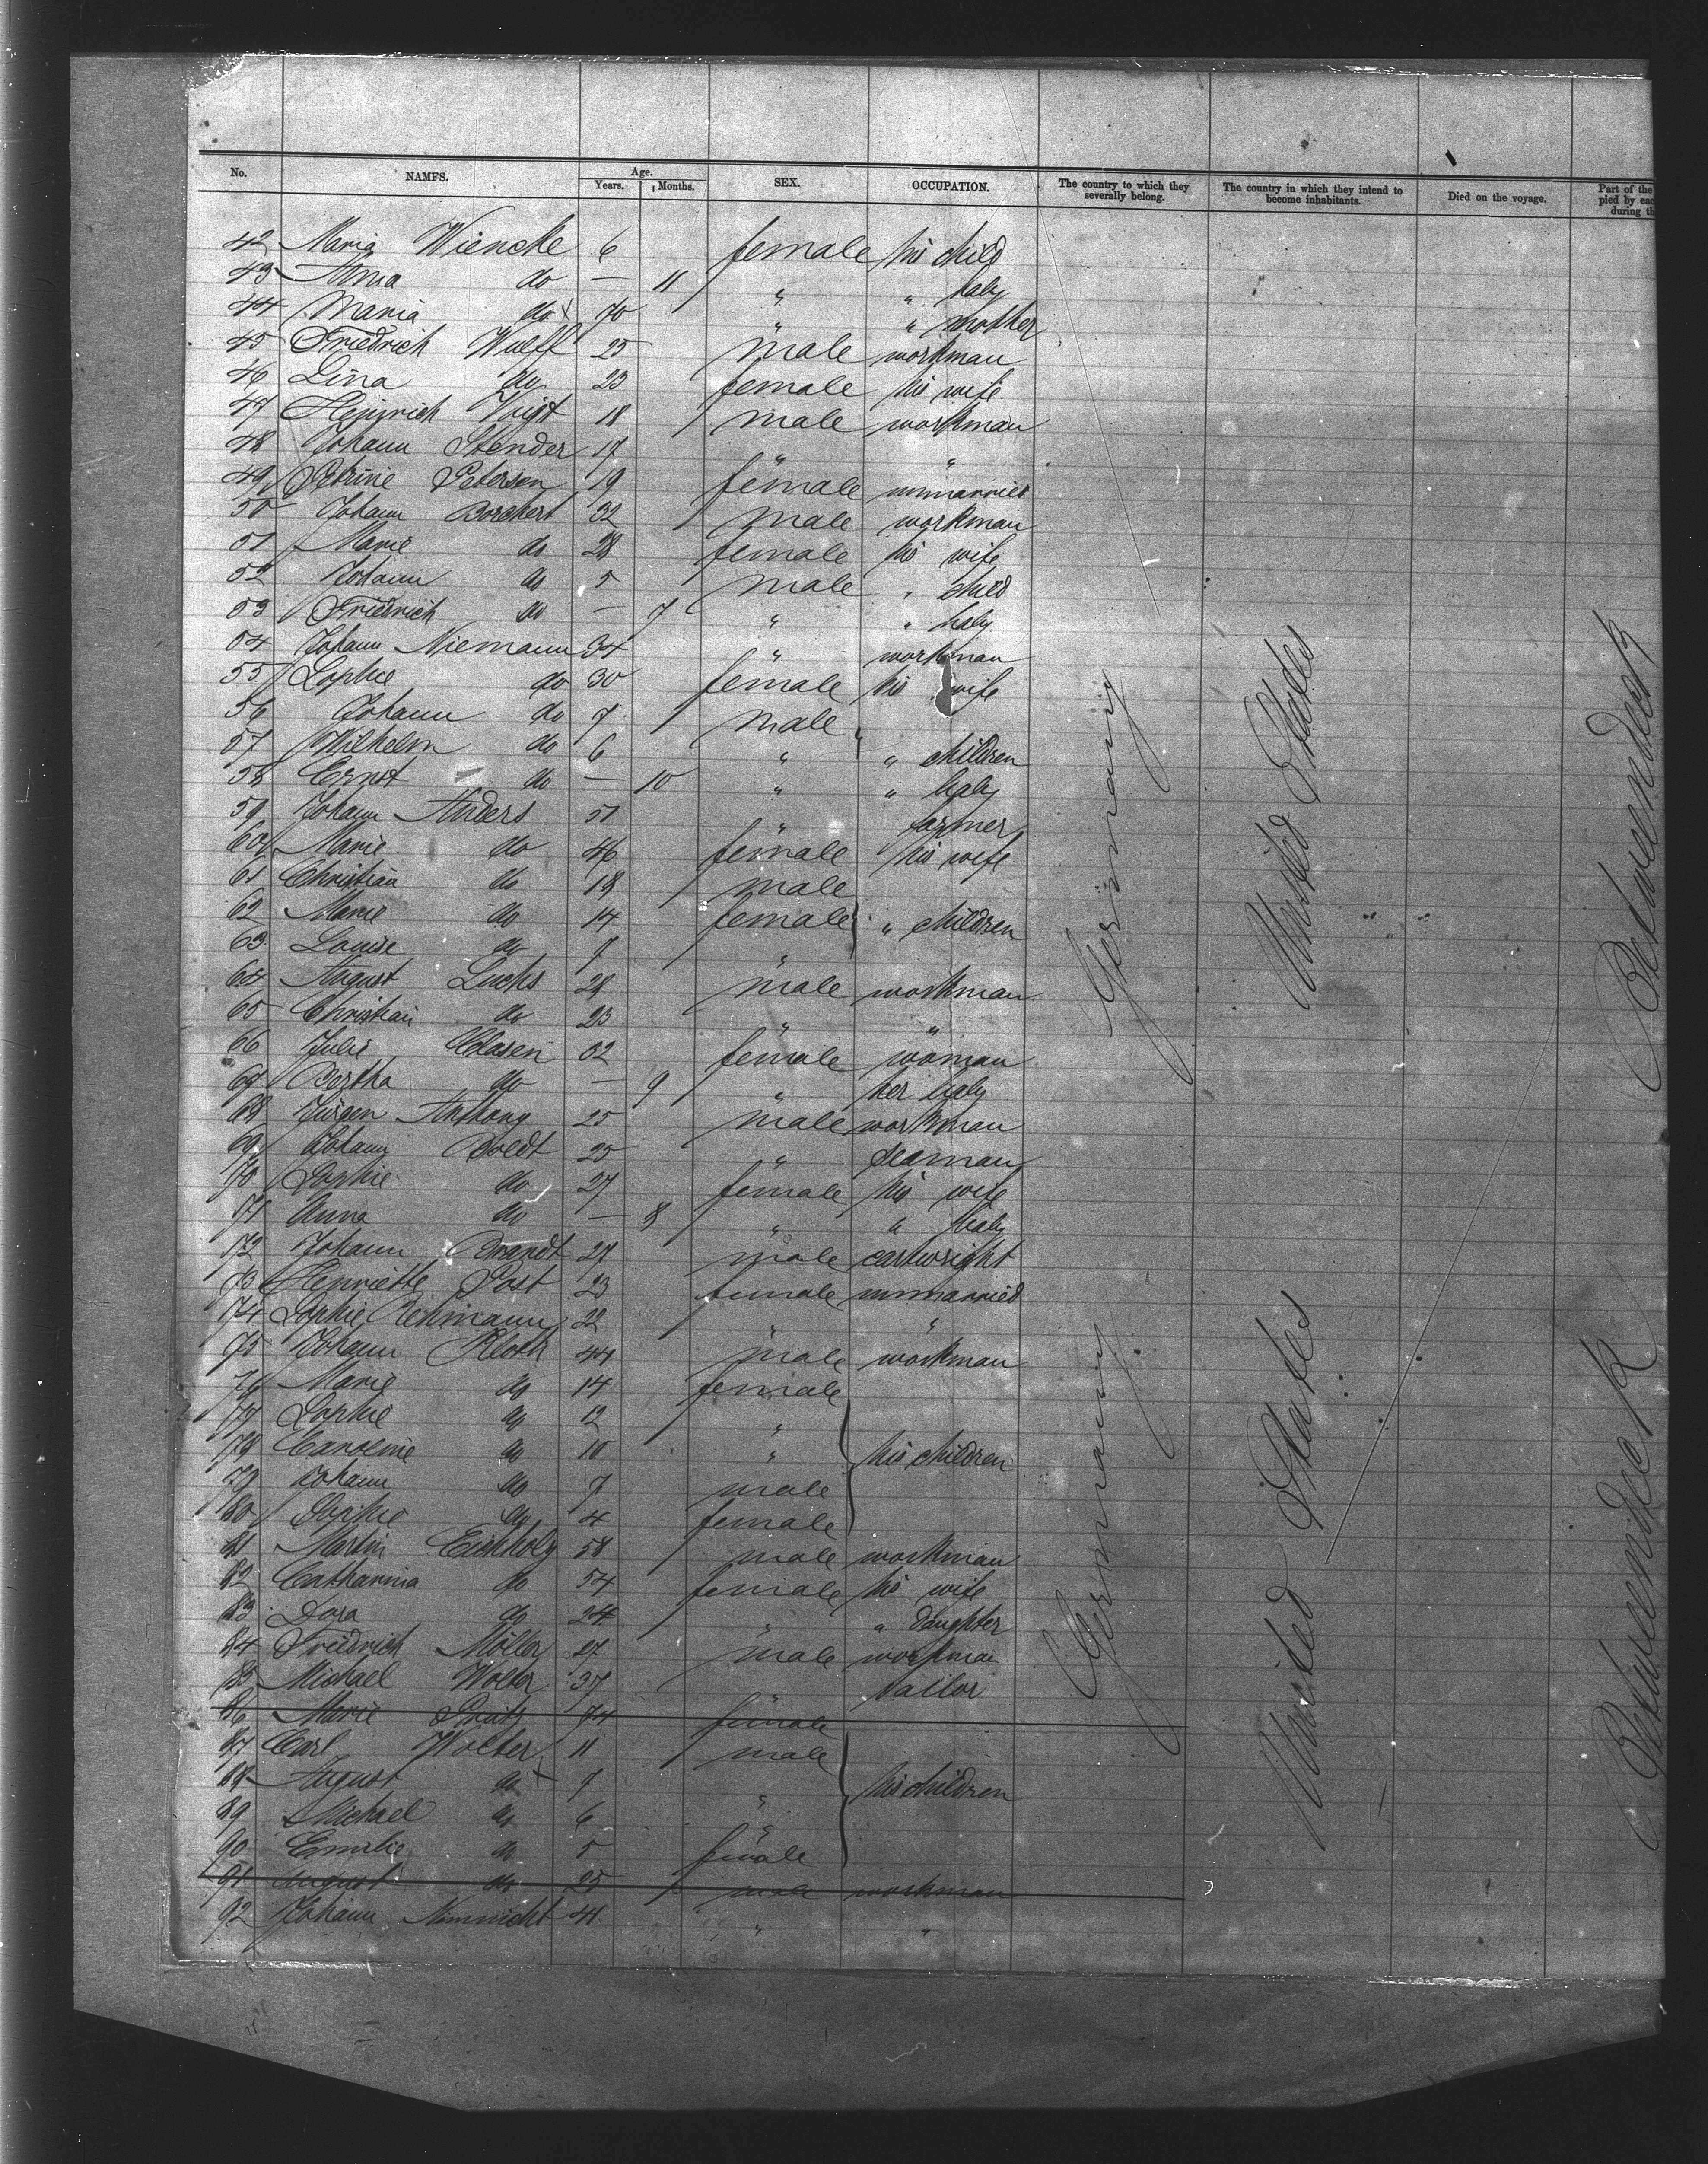 No. NAMES. Age. Years. Months. SEX. OCCUPATION. The country to which they severally belong. The country in which they intend to become inhabitants. Died on the voyage. Part of the
pied by eac
during th
42 Maria Wiencke 6 female his child
43 Anna do — 11 " " baby
44 Maria do 70 " " mother
45 Friedrich Wulff 25 male workman
46 Lina do 23 female his wife
47 Heinrich Voigt 18 male workman
48 Johann Stender 17 " "
49 Petrine Petersen 19 female unmarried
50 Johann Borchert 32 male workman
51 Marie do 28 female his wife
52 Johann do 5 male " child
53 Friedrich do — 7 " " baby
54 Johann Niemann 34 " workman
55 Sophie do 30 female his wife
56 Johann do 7 male
57 Wilhelm do 6 " " children
58 Ernst do — 10 " " baby
59 Johann Anders 51 " farmer
60 Marie do 46 female his wife
61 Christian do 18 male
62 Marie do 14 female " children
63 Louise do 7 "
64 August Luchs 28 male workman
65 Christian do 23 " "
66 Julie Clasen 32 female woman
67 Bertha do — 9 " her baby
68 Jürgen Anthony 25 male workman
69 Johann Boldt 25 " seaman
70 Sophie do 27 female his wife
71 Anna do — 8 " " baby
72 Johann Brandt 27 male cartwright
73 Henriette Post 23 female unmarried
74 Sophie Rehmann 22 " "
75 Johann Kloth 44 male workman
76 Marie do 14 female
77 Sophie do 12 "
78 Caroline do 10 " his children
79 Johann do 7 male
80 Sophie do 4 female
81 Martin Eichholz 58 male workman
82 Catharina do 54 female his wife
83 Dora do 24 " " daughter
84 Friedrich Möller 27 male workman
85 Michael Wolter 37 " tailor
86 Marie 74 female
87 Carl Wolter 11 male
88 August do 7 " his children
89 Michael do 6 "
90 Emilie do 5 female
91 August do 25 male workman
92 Johann Nimnicht 41 " "
Germany
United States
Betweendeck
Germany
United States
Betweendeck